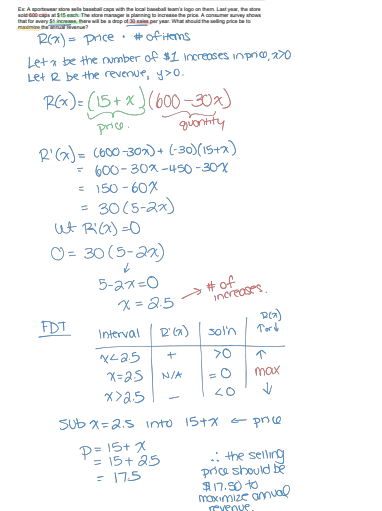 Ex: A sportswear store sells baseball caps with the local baseball team's logo on them. Last year, the store
sold 600 caps at $15 each. The store manager is planning to increase the price. A consumer survey shows
that for every $1 increase, there will be a drop of 30 sales per year. What should the selling price be to
maximize the annual revenue?
R(x) = price · # of items
Let x be the number of $1 increases in price, x>0
Let R be the revenue, y>0.
R(x) = (15+x)(600-30x)
price. quantity
R'(x) = (600-30x) + (-30)(15+x)
= 600-30x-450-30x
= 150-60x
= 30(5-2x)
Let R'(x)=0
0 = 30(5-2x)
5-2x=0
x = 2.5 → # of increases.
FDT
Interval R'(x) sol'n R(x) ↑or↓
x<2.5 + >0 ↑
x=2.5 N/A =0 max
x>2.5 - <0 ↓
SUB x=2.5 into 15+x ← price
p = 15+x
= 15+2.5
= 17.5
∴ the selling
price should be
$17.50 to
maximize annual
revenue.